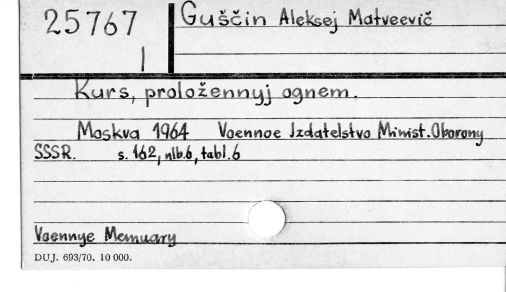 25767
Guščin Aleksej Matveevič
1
Kurs, proložennyj ognem.
Moskva 1964 Voennoe Izdatelstvo Minist. Oborony
SSSR. s. 162, nlb.6, tabl.6
Voennye Memuary
DUJ. 693/70. 10 000.